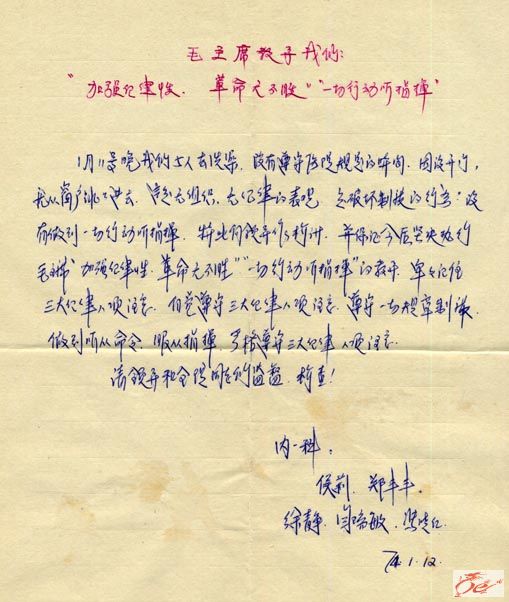 毛主席教导我们:
"加强纪律性, 革命无不胜" "一切行动听指挥"
1月11号晚我们五人去洗澡, 没有遵守医院规定的时间, 因没开门,
从窗户跳进去, 这是无组织, 无纪律的表现, 是破坏制度的行为, 没
有做到一切行动听指挥, 特此向领导作检讨, 并保证今后坚决执行
毛主席"加强纪律性, 革命无不胜" "一切行动听指挥"的教导, 牢牢记住
三大纪律八项注意, 自觉遵守三大纪律八项注意, 遵守一切规章制度,
做到听从命令, 服从指挥, 严格遵守三大纪律八项注意.
请领导和全院同志们监督, 检查!
内一科:
侯莉. 郑丰丰.
徐静. 敏.
74.1.12.